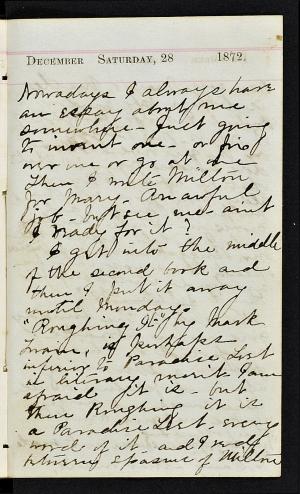 DECEMBER SATURDAY, 28 1872.
Nowadays I always have
an essay about me
somewhere - Just going
to invent one - or
over one or go at one
Then I write Milton
for Mary - An awful
Job - but see, me - aint
I ready for it?
I get into the middle
of the second book and
then I put it away
until Monday.
"Roughing It" by Mark
Twain, is perhaps
inferior to Paradise Lost
in literary merit I am
afraid it is - but
then Roughing it is
a Paradise Lost - every
word of it - and I
spasms of Milton